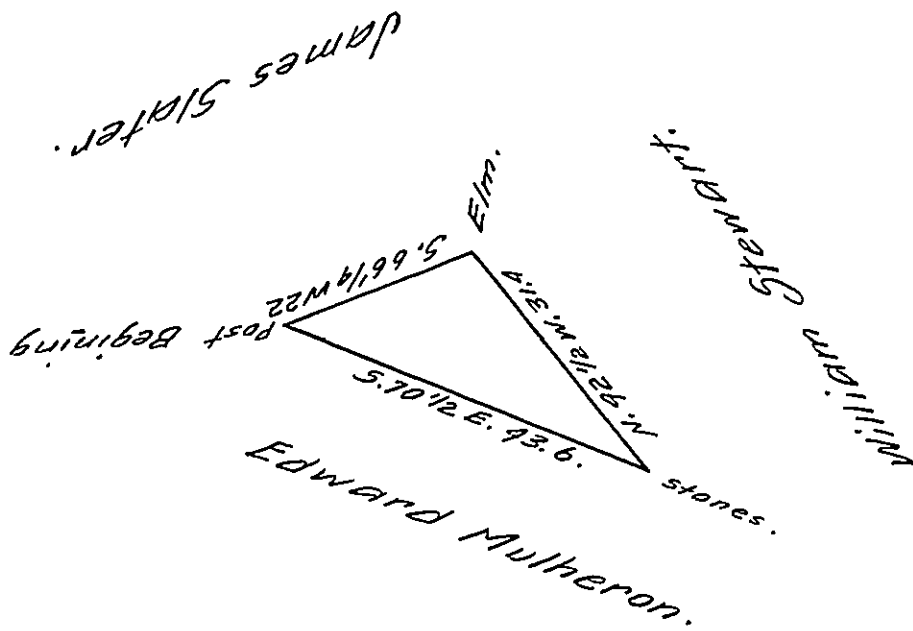 James Slater.
William Stewart.
Elm.
S. 66 1/4 W 22
Post Begining
N. 42 1/2 W. 31.4
S. 70 1/2 E. 43.6.
stones.
Edward Mulheron.